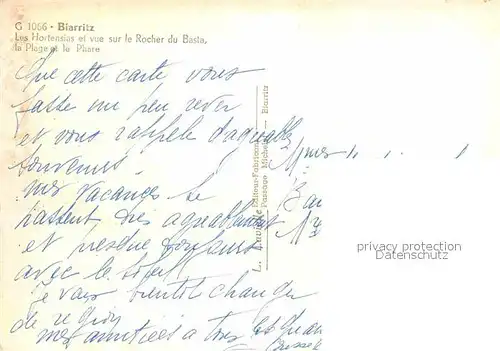 G 1066 - Biarritz
Les Hortensias et vue sur le Rocher du Basta,
la Plage et le Phare
Que cette carte vous
fasse un peu rever
et vous rappelle d'agreables
souvenirs.
mes vacances se
passent très agreablement
et presque toujours
avec le soleil
je vais bientôt changer
de region
mes amitiées a tous
Editeur-Fabricant
Passage — Biarritz
Mmes
privacy protection
www.delcampe.net